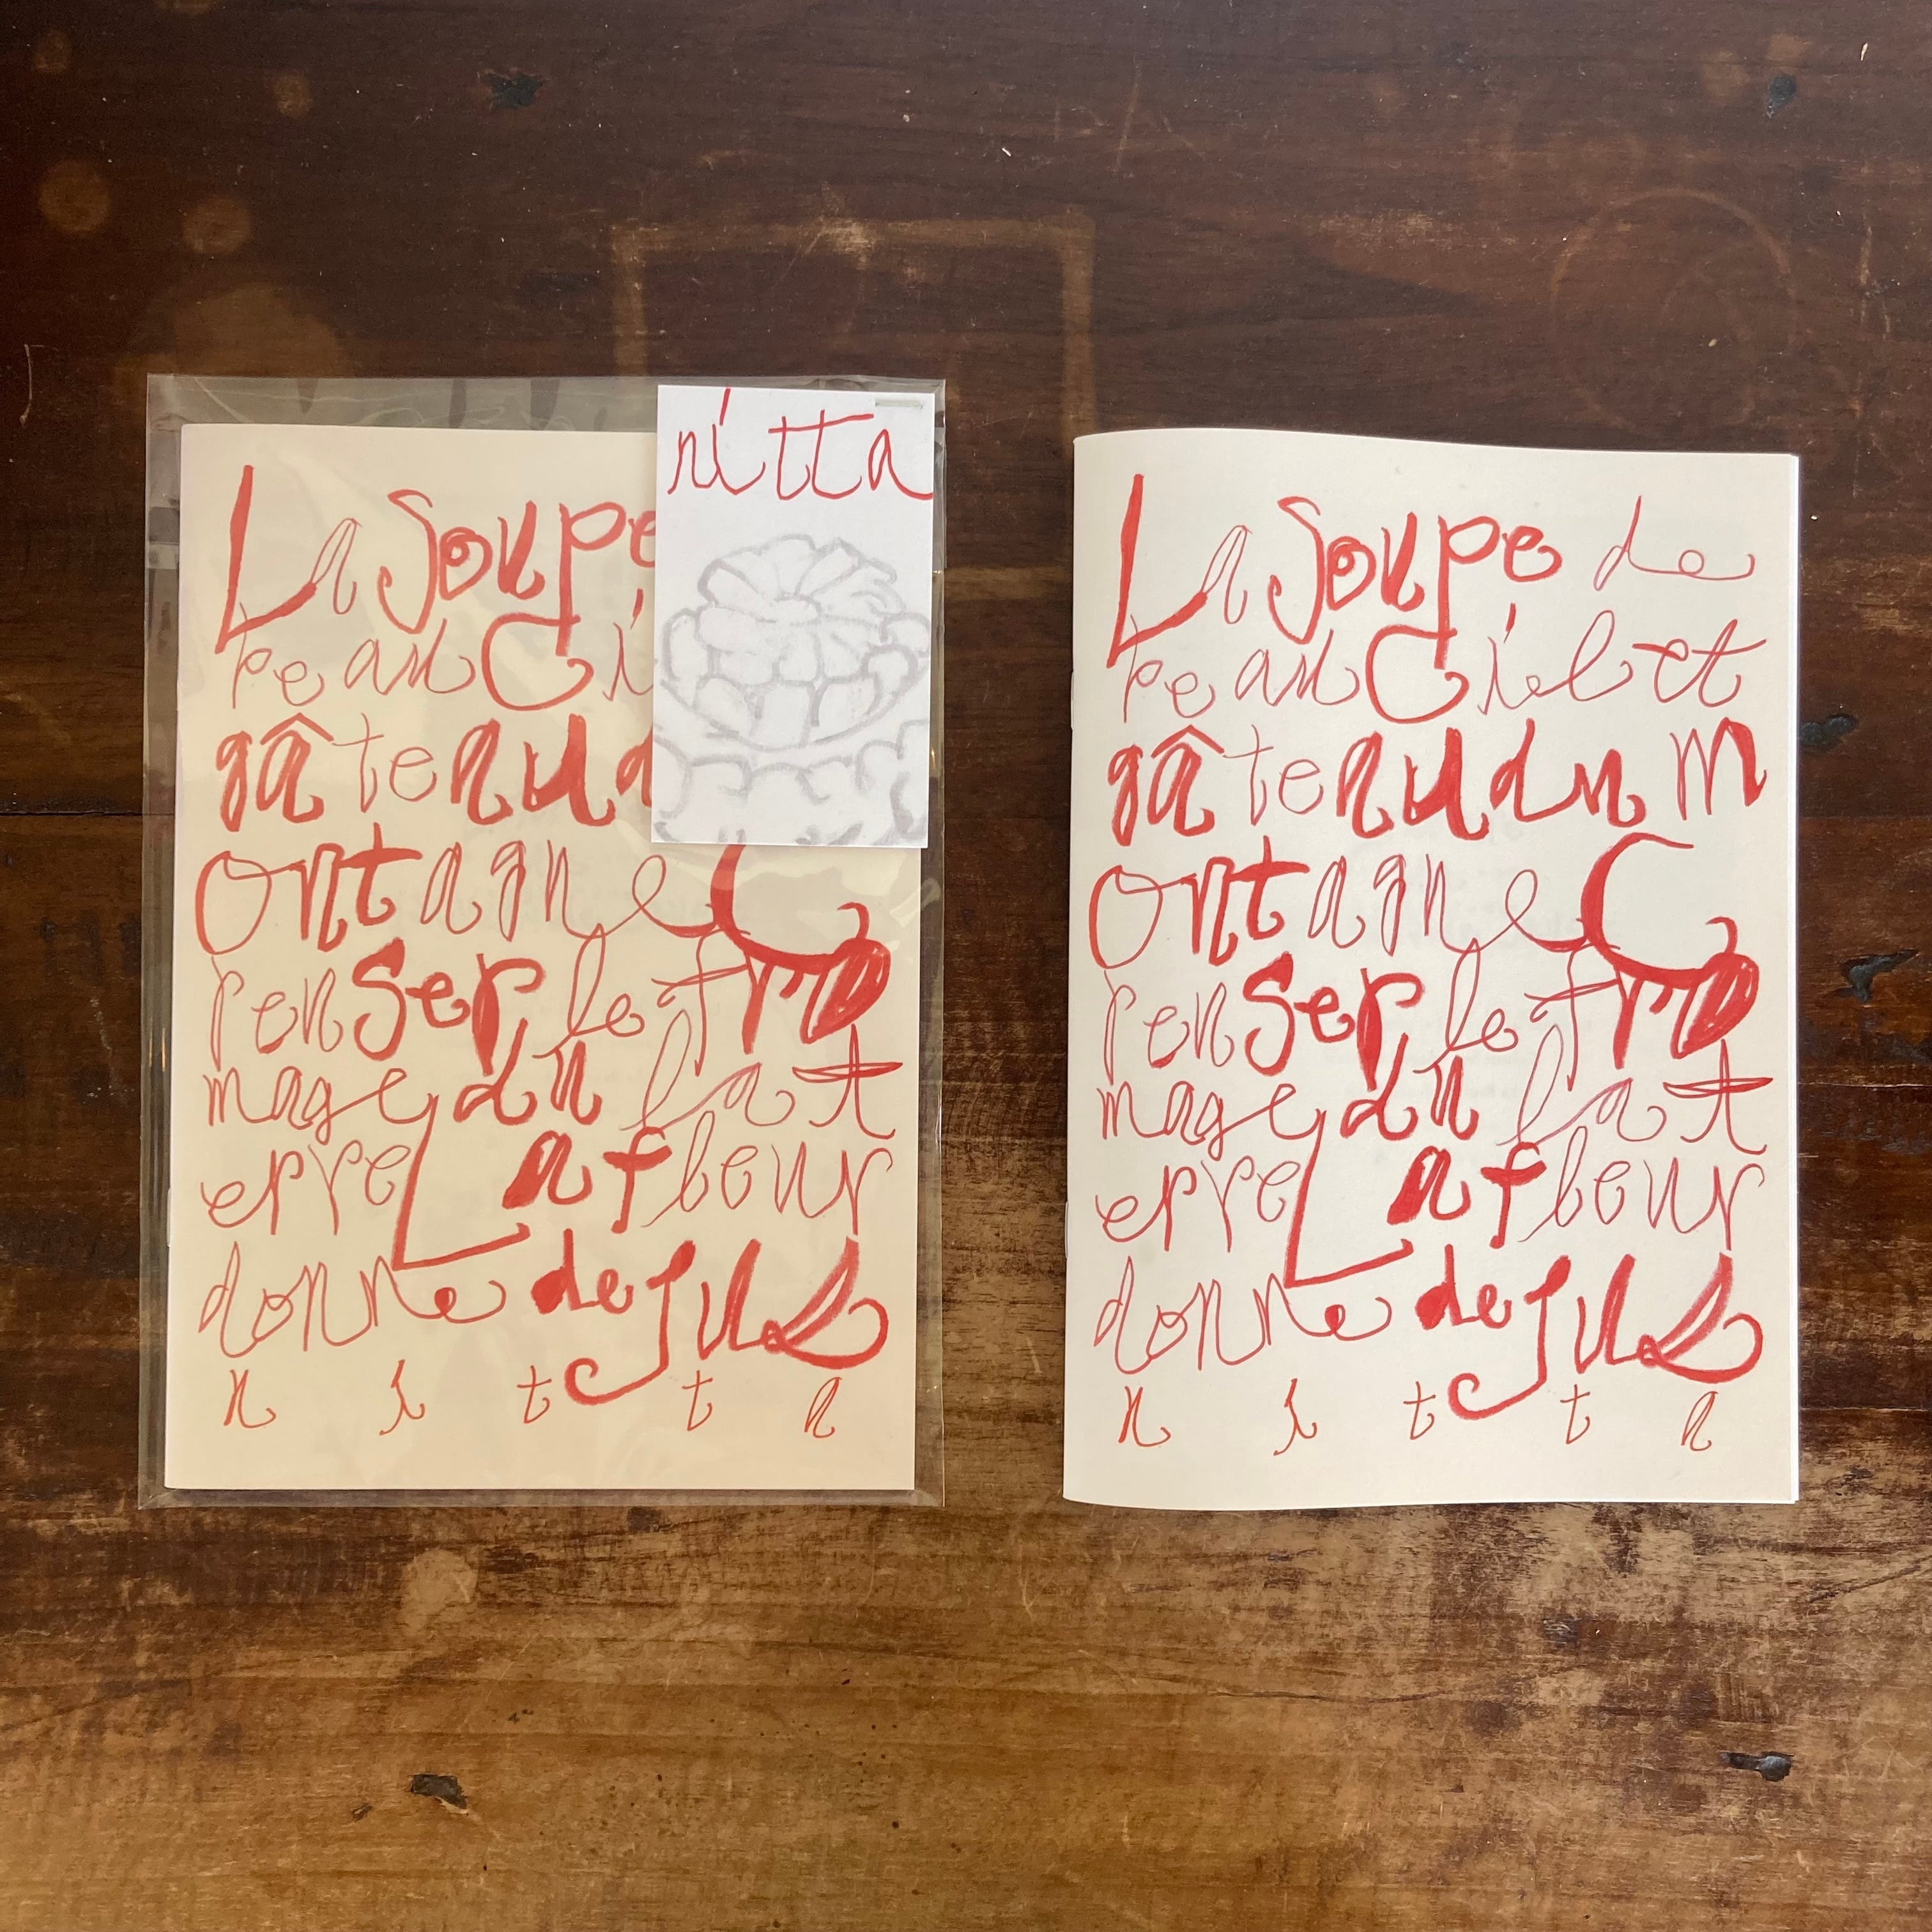 nitta
La Soupe
pe au Ci
gâteau d
ontagne C
reuser le fro
mage du la t
erre La fleur
donne de jus
n i t t a
La Soupe de
pe au Ciel et
gâteau du M
ontagne C
reuser le fro
mage du la t
erre La fleur
donne de jus
n i t t a